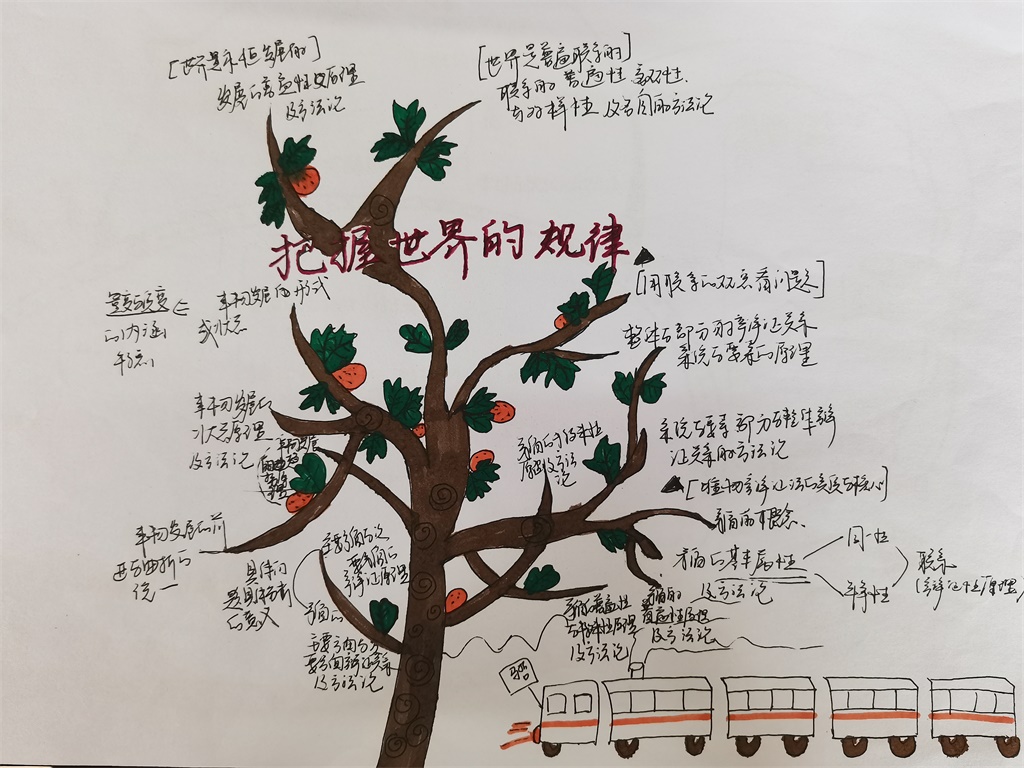 [世界是永恒发展的]
发展的普遍性及原理
及方法论
[世界是普遍联系的]
联系的普遍性 客观性
与多样性 及各自的方法论
把握世界的规律
量变与质变
的内涵
事物发展的形式
或状态
[用联系的观点看问题]
整体与部分的辩证关系
系统与要素的原理
事物发展的
状态原理
及方法论
系统与要素 部分与整体辩
证关系的方法论
矛盾的特殊性
原理及方法
论
[唯物辩证法的实质与核心]
矛盾的概念
事物发展的前
进与曲折的
统一
矛盾的基本属性
及方法论
同一性
斗争性
联系
具体问
题具体分析
的意义
主要矛盾与次
要矛盾的
辩证原理
矛盾的
主要方面与次
要方面辩证关系
及方法论
矛盾的普遍性
与特殊性原理
及方法论
矛盾的
普遍性原理
及方法论